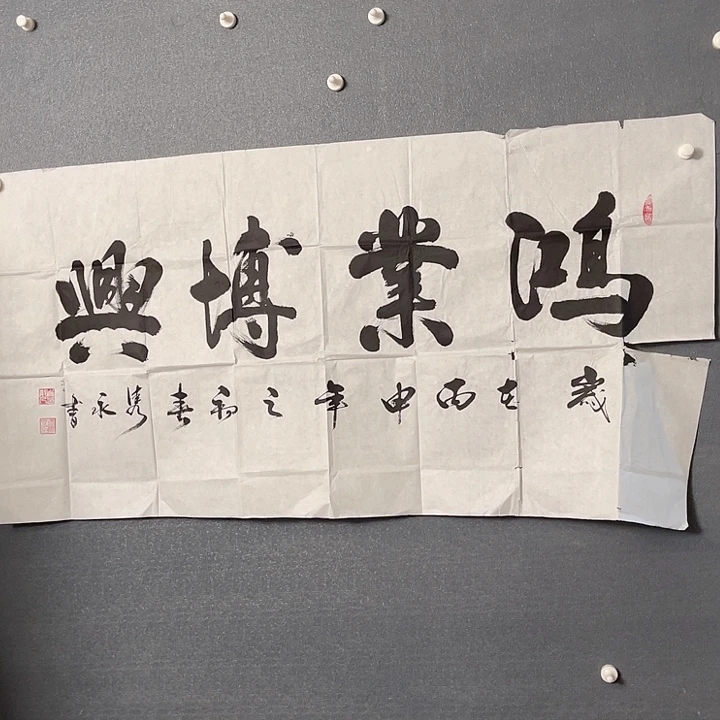 鸿業博興
歲在丙申年之初春永書